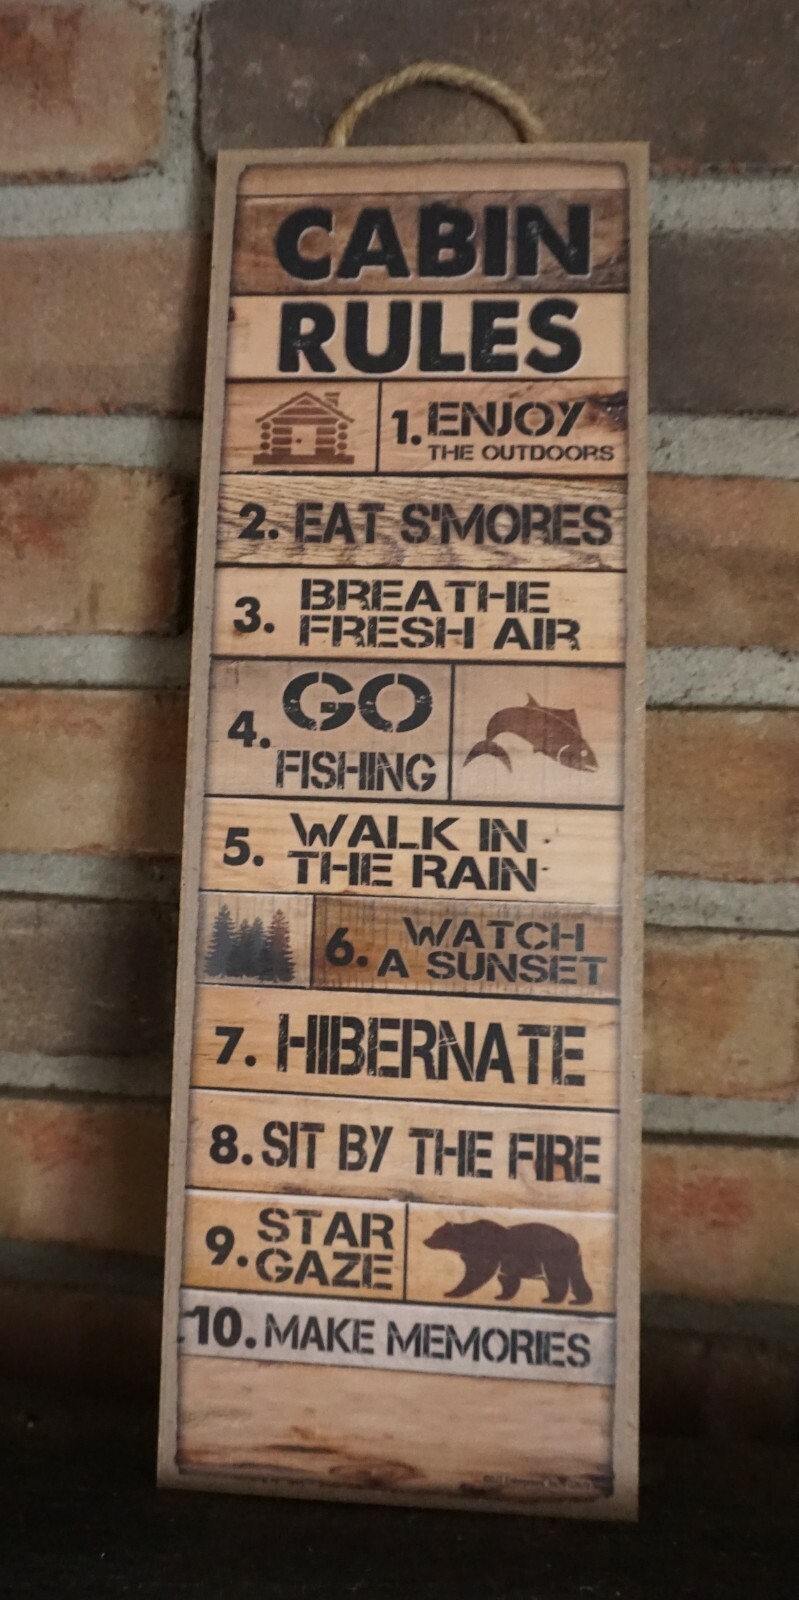 CABIN
RULES
1. ENJOY
THE OUTDOORS
2. EAT S'MORES
3. BREATHE
FRESH AIR
4. GO
FISHING
5. WALK IN
THE RAIN
6. WATCH
A SUNSET
7. HIBERNATE
8. SIT BY THE FIRE
9. STAR
GAZE
10. MAKE MEMORIES